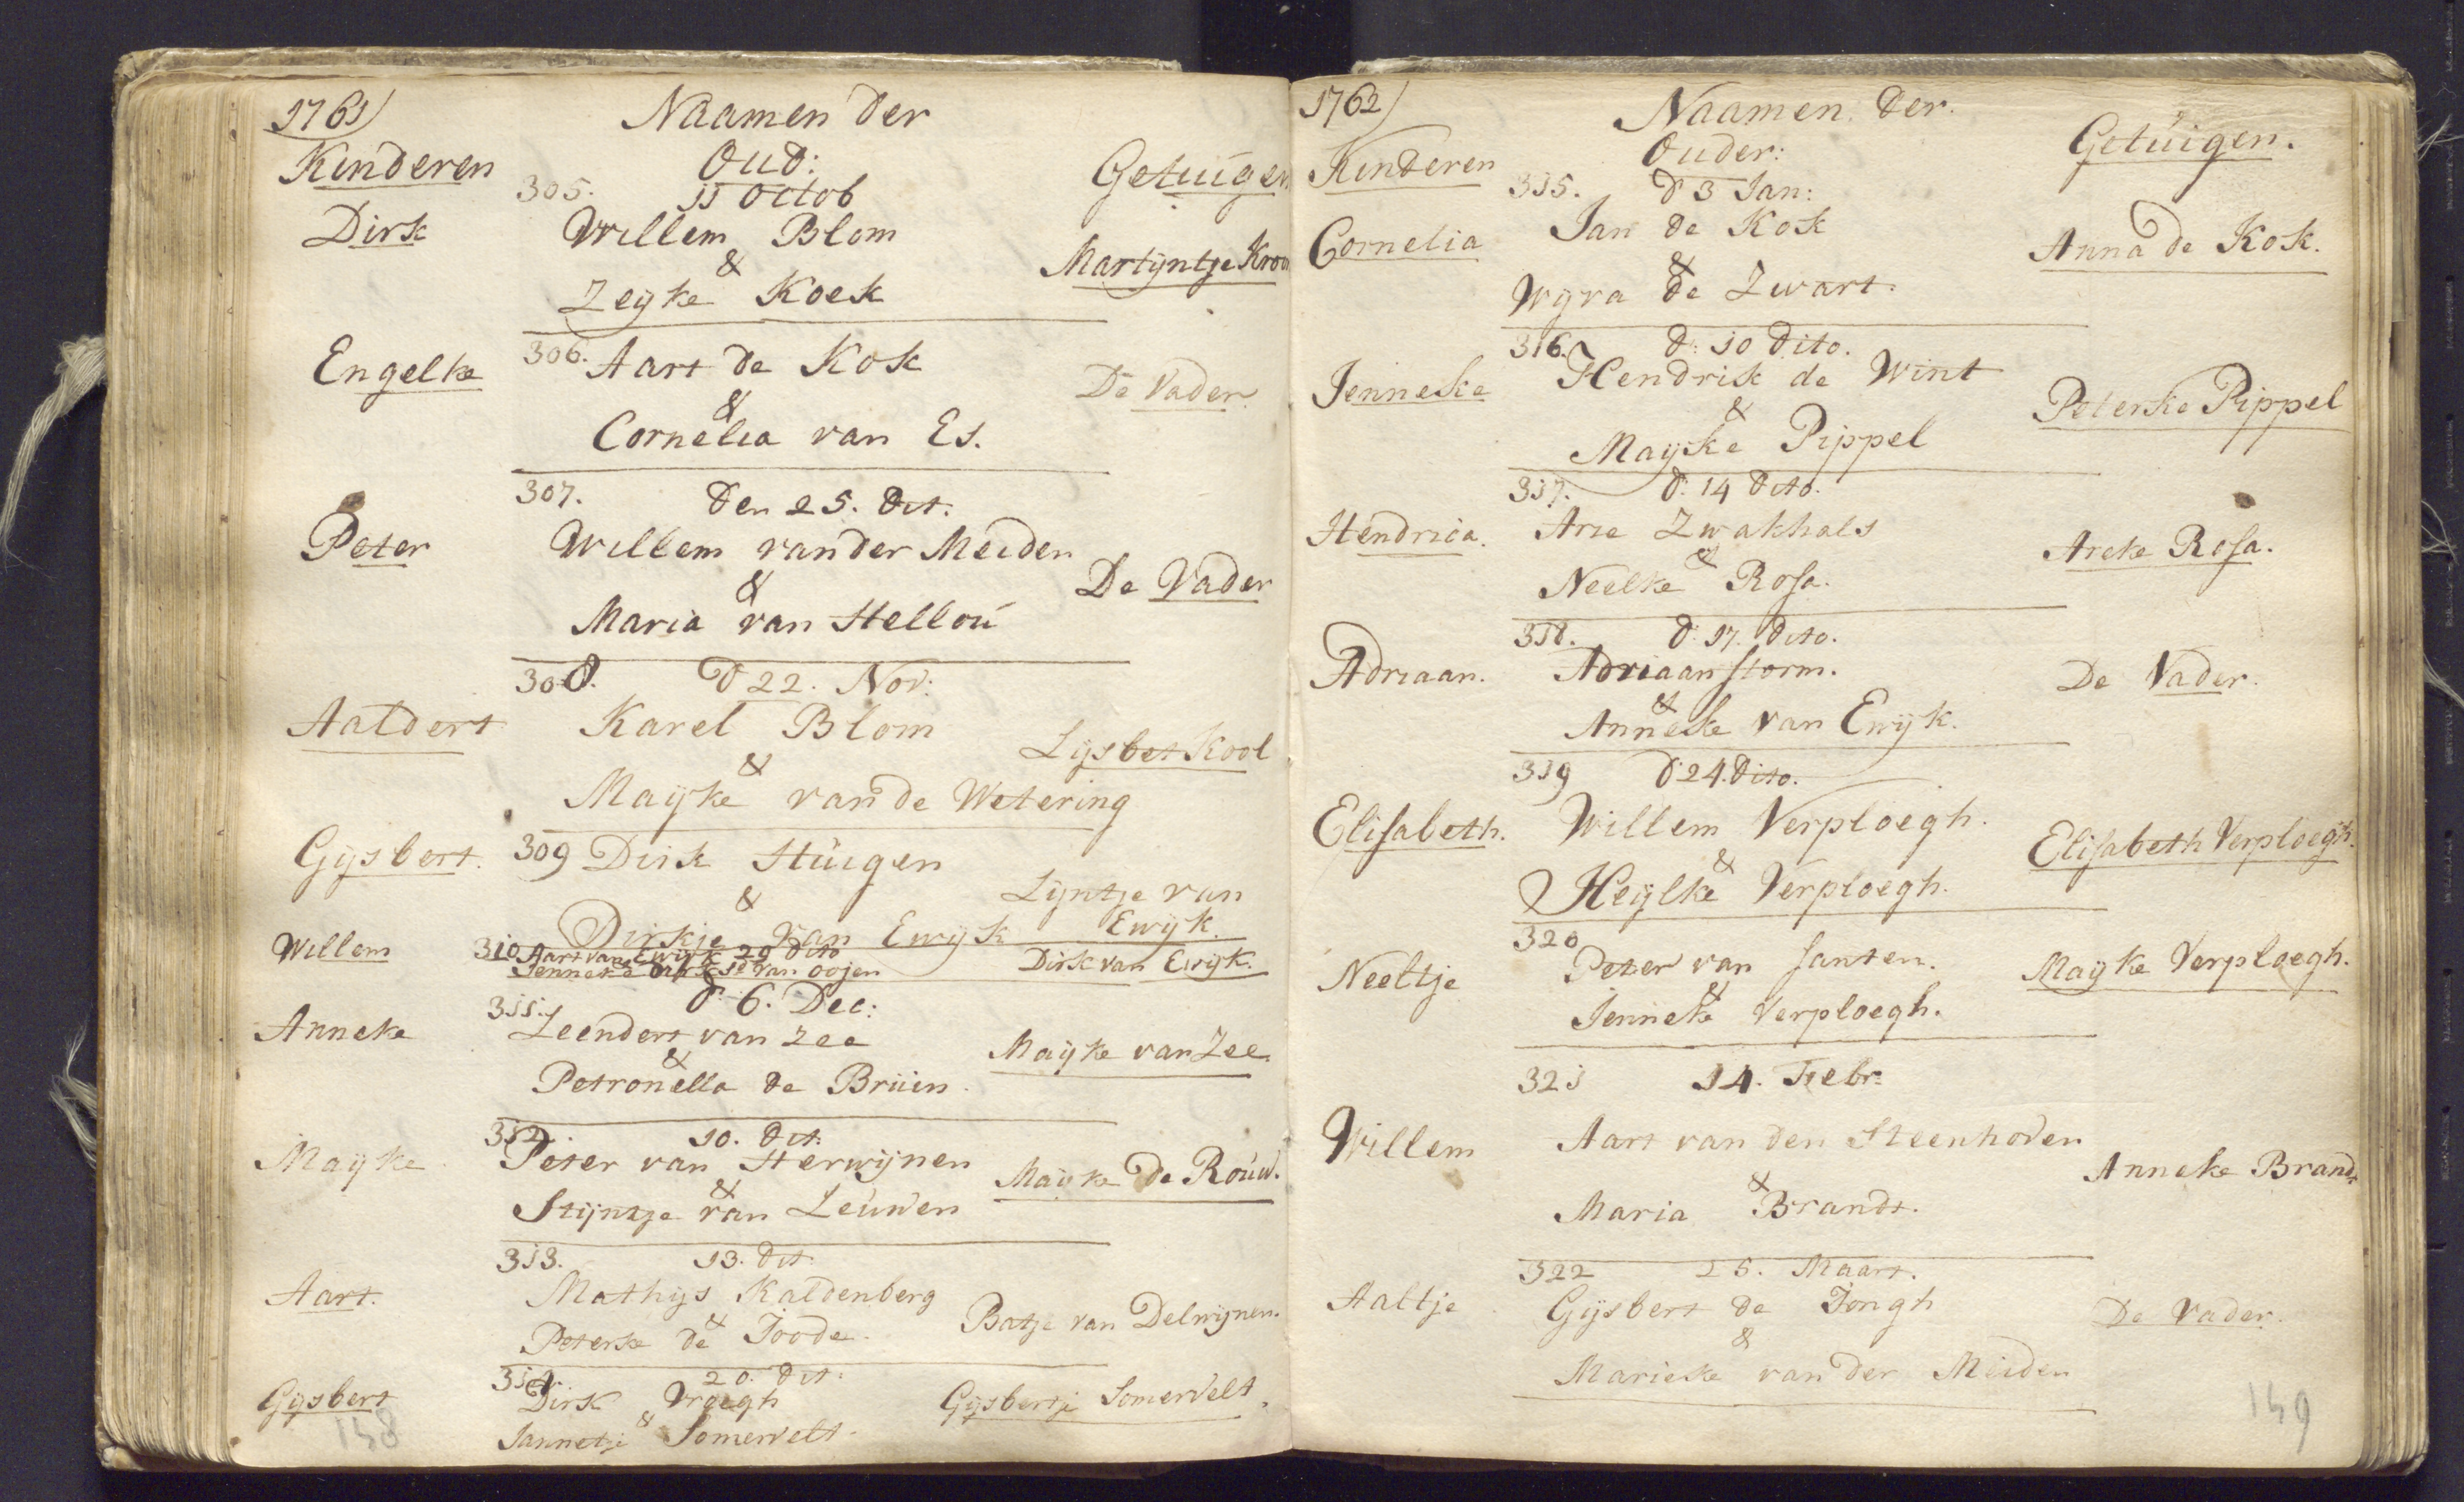 1761
Naamen der
Kinderen
Oud:
Getuigen
305. 11 Octob
Dirk
Willem Blom
&
Martijntje
Zeijke Koek
306. Aart de Kok
Engelke
De Vader
&
Cornelia van Es.
307. Den 25. Dit.
Peter
Willem van der Meiden
&
De Vader
Maria van Hellou
308. D 22. Nov:
Aaldert
Karel Blom
Lijsbet Kool
&
Maijke van de Wetering
Gijsbert. 309 Dirk Huigen
&
Lijntje van
Dirkje van Ewijk
Ewijk.
Willem
310 Aart van Ewijk 29 dito
Dirk van Ewijk.
Jenneke van oojen
d. 6. Dec:
311.
Anneke
Leendert van Zee
&
Maijke van Zee.
Petronella de Bruin.
312. 10. dit:
Maijke
Peter van Herwijnen
&
Maijke de Rouw.
Stijntje van Leuwen
313. 13. dit.
Aart.
Mathijs Kaldenberg
&
Batje van Delwijnen.
Peterke de Joode.
314. 20. dit:
Gijsbert
Dirk Vroegh
&
Gijsbertje Somervelt.
Jannetje Somervelt.
148
1762
Naamen der.
Kinderen
Ouder:
Getuigen.
315. D 3 Jan:
Cornelia
Jan de Kok
&
Anna de Kok.
Wijva de Zwart.
316. d: 10 Dito.
Jenneke
Hendrik de Wint
&
Peterke Pippel
Maijke Pippel
317. d. 14 dito.
Hendrica.
Arie Zwakhals
&
Areke Rosa.
Neelke Rosa.
318. d. 17. dito.
Adriaan.
Adriaan storm.
&
De Vader.
Anneke van Ewijk.
319 d. 24. dito.
Elisabeth.
Willem Verploegh.
&
Elisabeth Verploegh.
Heijlke Verploegh.
320
Neeltje
Peter van santen.
&
Maijke Verploegh.
Jenneke Verploegh.
321 14. Febr:
Willem
Aart van den Steenhoven
&
Anneke Brandt
Maria Brandt.
322 25. Maart.
Aaltje
Gijsbert de Jongh
&
De Vader.
Marieke van der Meiden
149